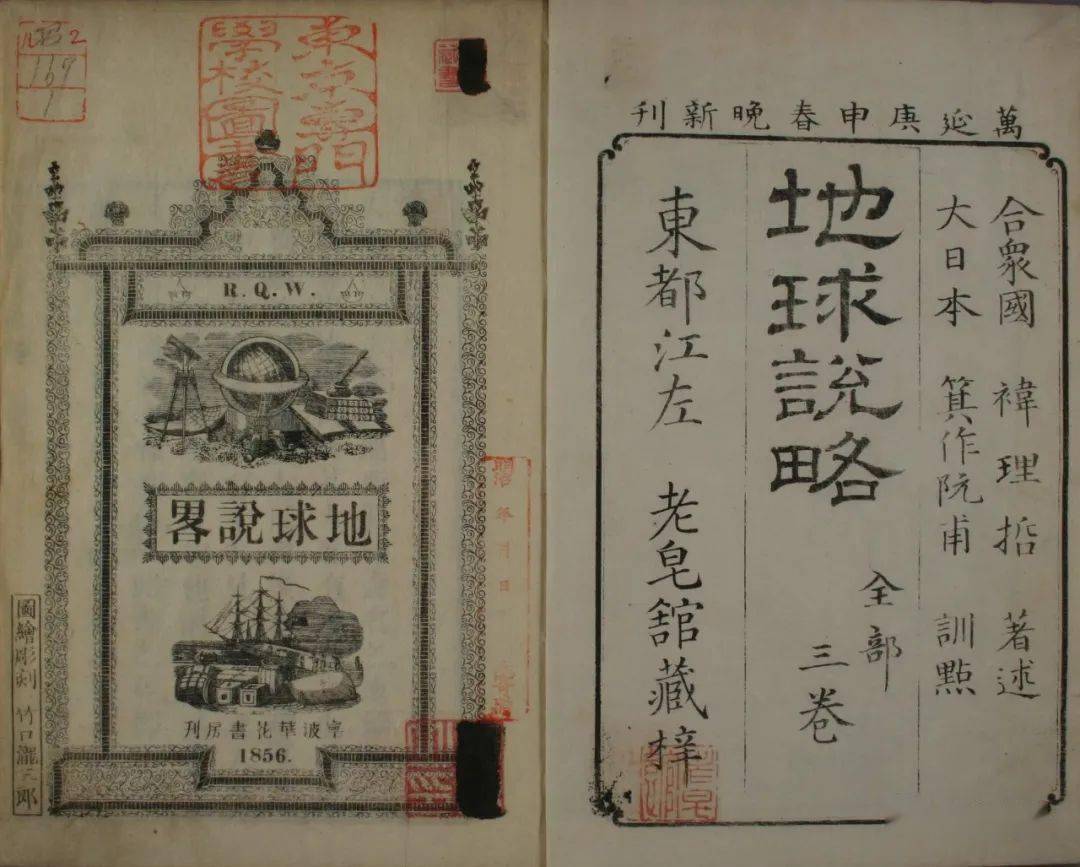 萬延庚申春晚新刊
合衆國 褘理哲 著述
大日本 箕作阮甫 訓點
地球說略
全部
三卷
東都江左 老皂館藏梓
東京專門
學校圖書
藏書
2
1
R. Q. W.
地球說畧
寧波華花書房刊
1856.
圖繪彫刻 竹口瀧三郎